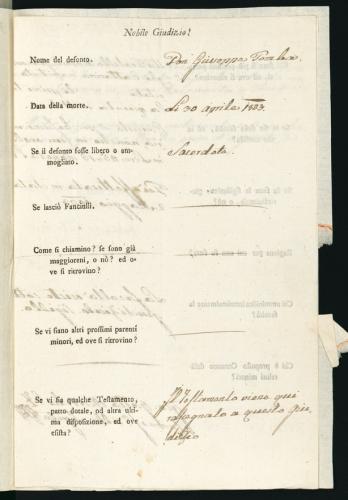 Nobile Giudizio!
Nome del defonto. Don Giuseppe
Data della morte. Li 30 aprile
Se il defonto fosse libero o am-
mogliato. Sacerdote.
Se lasciò Fanciulli.
Come si chiamino? se sono già
maggioreni, o nò? ed o-
ve si ritrovino?
Se vi siano altri prossimi parenti
minori, ed ove si ritrovino?
Se vi sia qualche Testamento,
patto dotale, od altra ulti-
ma disposizione, ed ove
esista?
Il Testamento viene qui
rassegnato a questo Giu-
dizio